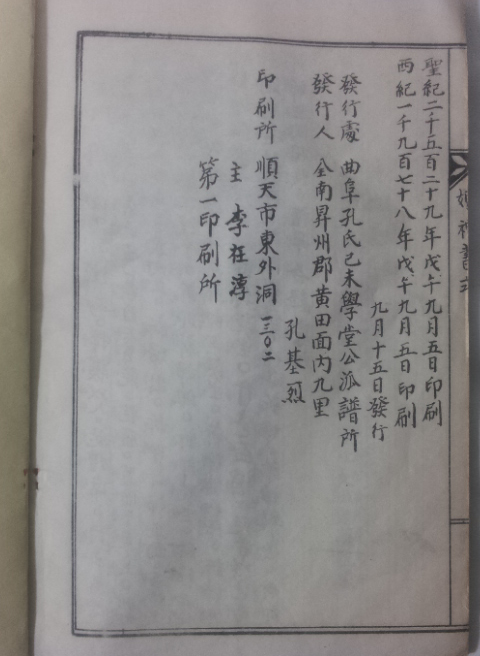 聖紀二千五百二十九年戊午九月五日印刷
西紀一千九百七十八年戊午九月五日印刷
九月十五日發行
發行處 曲阜孔氏己未學堂公派譜所
發行人 全南昇州郡黄田面内九里
孔基烈
印刷所 順天市東外洞一三〇二
主 李在淳
第一印刷所